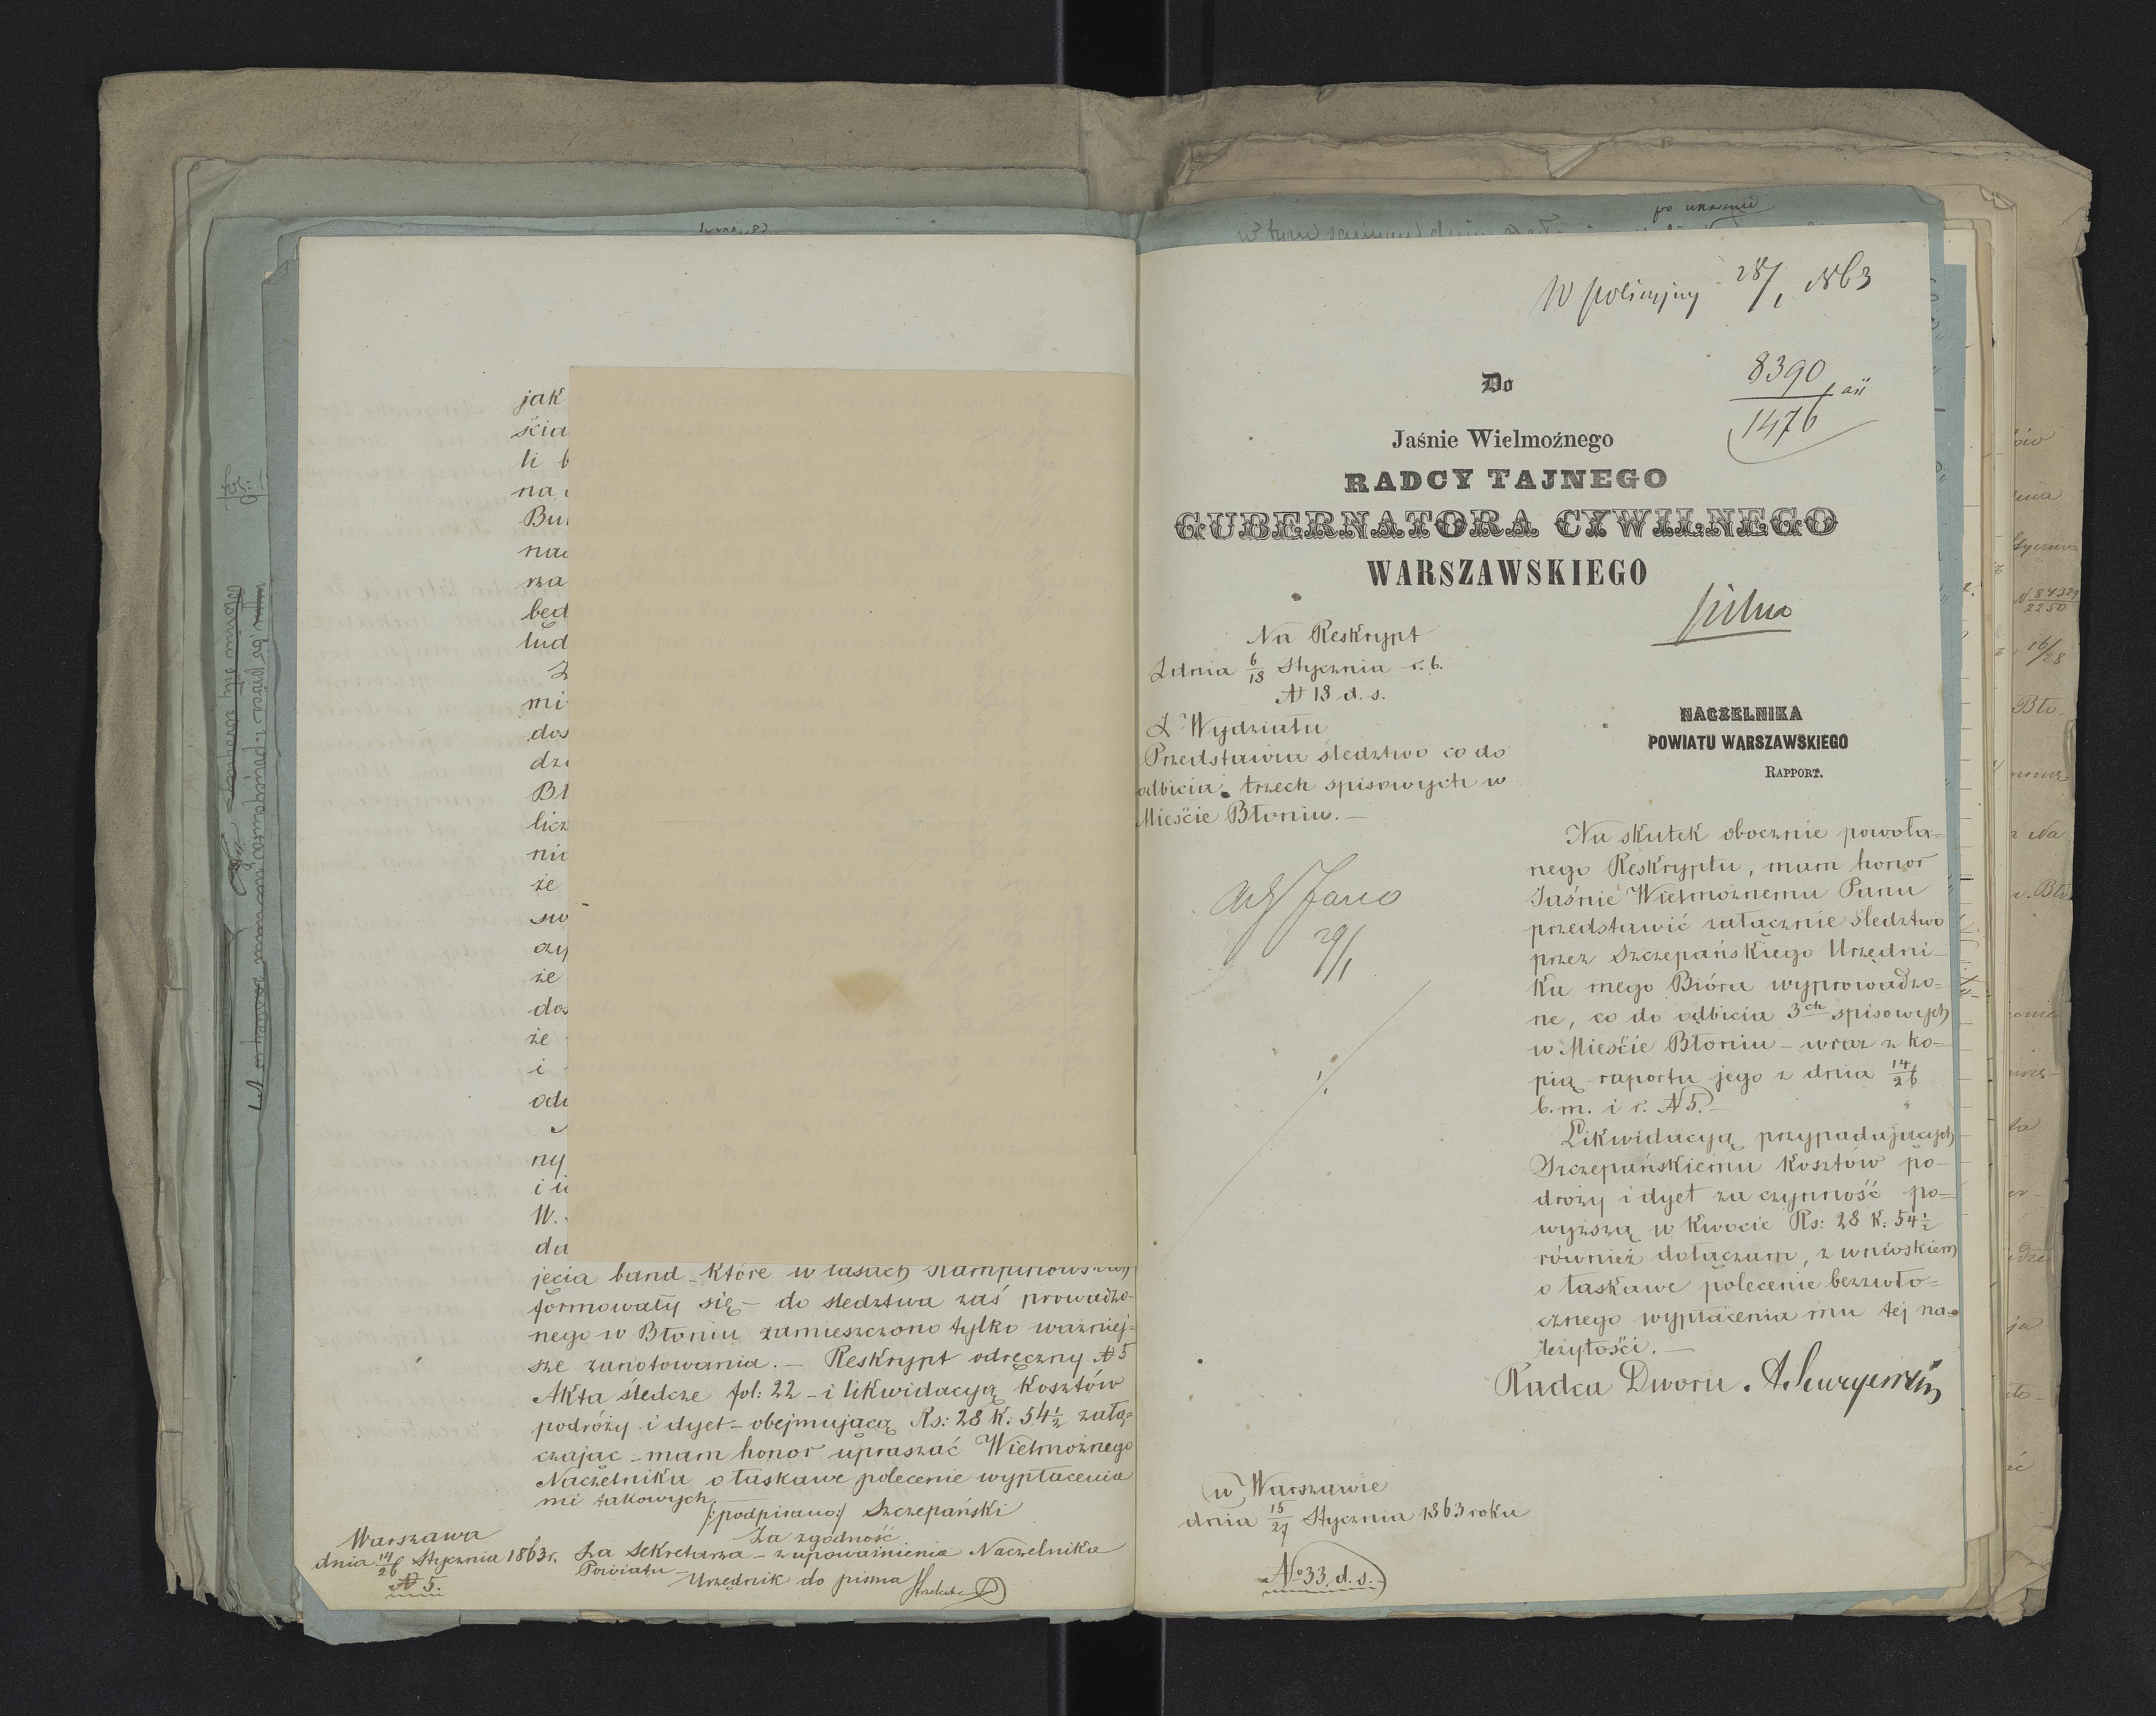 jak
ścia
li b
na
Bu
nad
rza
będ
lud
Z
mi
dos
dzi
Bł
licz
nie
że
sw
czy
że
dos
że
i
od
ny
i
W.
da
jęcia band które w lasach
formowały się – do śledztwa zaś prowadzo-
nego w Błoniu zamieszczono tylko ważniej-
sze zanotowania. – Reskrypt odręczny № 5
Akta śledcze fol: 22 – i likwidacyą kosztów
podróży i dyet – obejmującą Rs: 28 K: 54½ załą-
czając – mam honor upraszać Wielmożnego
Naczelnika o łaskawe polecenie wypłacenia
mi takowych.
/:podpisano:/ Szczepański
Za zgodność
Za Sekretarza – z upoważnienia Naczelnika
Powiatu
Urzędnik do pisma
Warszawa
dnia 14/26 Stycznia 1863 r.
№ 5.
W policyjny 28/1 863
8390
1476
Do
Jaśnie Wielmożnego
RADCY TAJNEGO
GUBERNATORA CYWILNEGO
WARSZAWSKIEGO
pilno
Na Reskrypt
Z dnia 6/18 Stycznia r. b.
№ 13 d. s.
Z Wydziału
Przedstawia śledztwo co do
odbicia trzech spisowych w
Mieście Błoniu. –
NACZELNIKA
POWIATU WARSZAWSKIEGO
RAPPORT.
29/1
Na skutek obocznie powoła-
nego Reskryptu, mam honor
Jaśnie Wielmożnemu Panu
przedstawić załącznie śledztwo
przez Szczepańskiego Urzędni-
ka mego Bióra wyprowadzo-
ne, co do odbicia 3ch spisowych
w Mieście Błoniu – wraz z ko-
pią raportu jego z dnia 14/26
b. m. i r. № 5. –
Likwidacyą przypadających
Szczepańskiemu kosztów po-
droży i dyet za czynność po-
wyższą w kwocie Rs: 28 K: 54½
również dołączam, z wnioskiem
o łaskawe polecenie bezzwło-
cznego wypłacenia mu tej na-
leżytości. –
Radca Dworu
w Warszawie
dnia 15/27 Stycznia 1863 roku
№ 33 d. s.